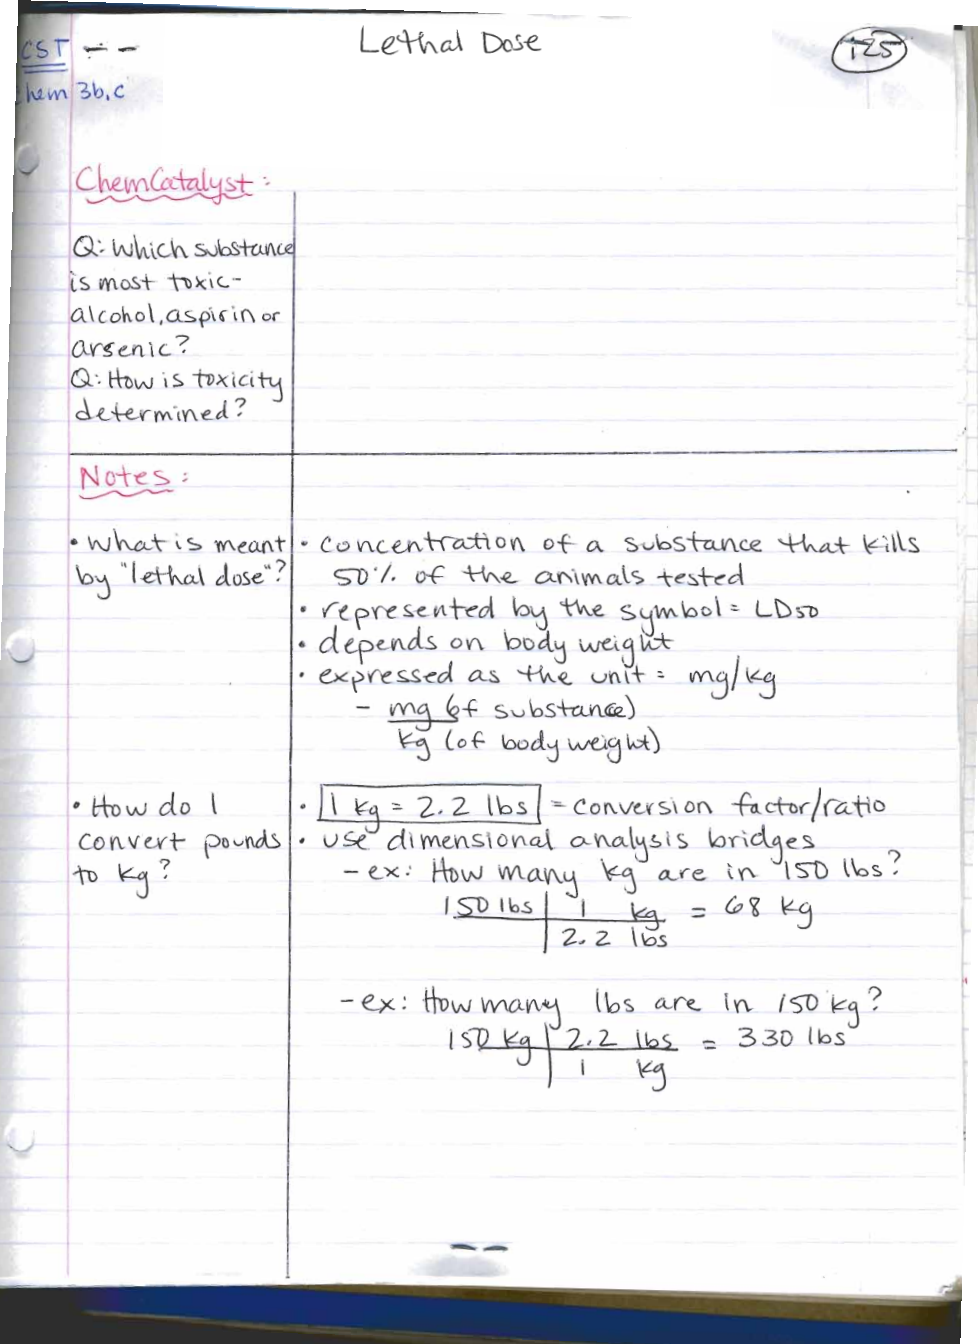 Lethal Dose
T25
CST
hem 3b,c
ChemCatalyst:
Q: Which substance
is most toxic-
alcohol, aspirin or
arsenic?
Q: How is toxicity
determined?
Notes:
• What is meant
by "lethal dose"?
• concentration of a substance that kills
50% of the animals tested
• represented by the symbol = LD50
• depends on body weight
• expressed as the unit = mg/kg
- mg (of substance)
kg (of body weight)
• How do I
convert pounds
to kg?
• 1 kg = 2.2 lbs = conversion factor/ratio
• use dimensional analysis bridges
- ex: How many kg are in 150 lbs?
150 lbs 1 kg = 68 kg
2.2 lbs
- ex: How many lbs are in 150 kg?
150 kg 2.2 lbs = 330 lbs
1 kg